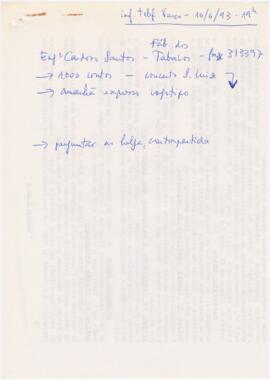 inf. telef. Vasco - 10/6/93 - 19h
Fáb. dos
Engº Cardoso Santos - Tabacos - fax 313397
→ 1000 contos - concerto S. Luiz
→ amanhã expresso logotipo
→ perguntar ao Helge, contrapartida